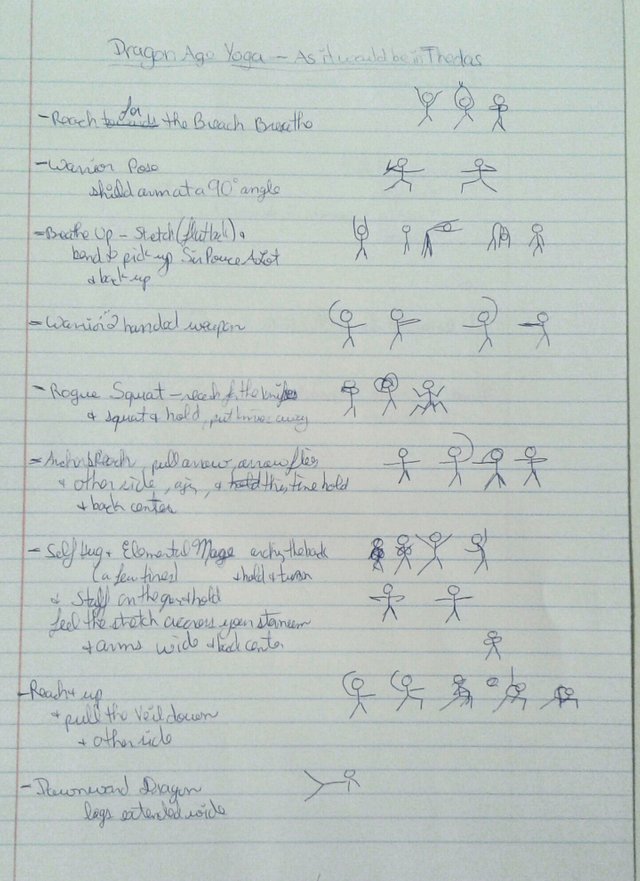 Dragon Age Yoga - As it would be in Thedas
- Reach towards for the Breach Breathe
- Warrior Pose
shield arm at a 90° angle
- Breathe Up - stretch (flatback) +
bend to pick up Ser Pounce A Lot
+ back up
- Warrior 2 handed weapon
- Rogue Squat - reach for the knifes
+ squat + hold, put knives away
- Archer Reach, pull arrow, arrow flies
+ other side, again, + hold this time hold
+ back center
- Self Hug + Elemental Mage arching the back
(a few times) + hold + turn
+ Staff on the ground hold
feel the stretch accross your sternum
+ arms wide + back center
- Reach + up
+ pull the Veil down
+ other side
- Downward Dragon
legs extended wide